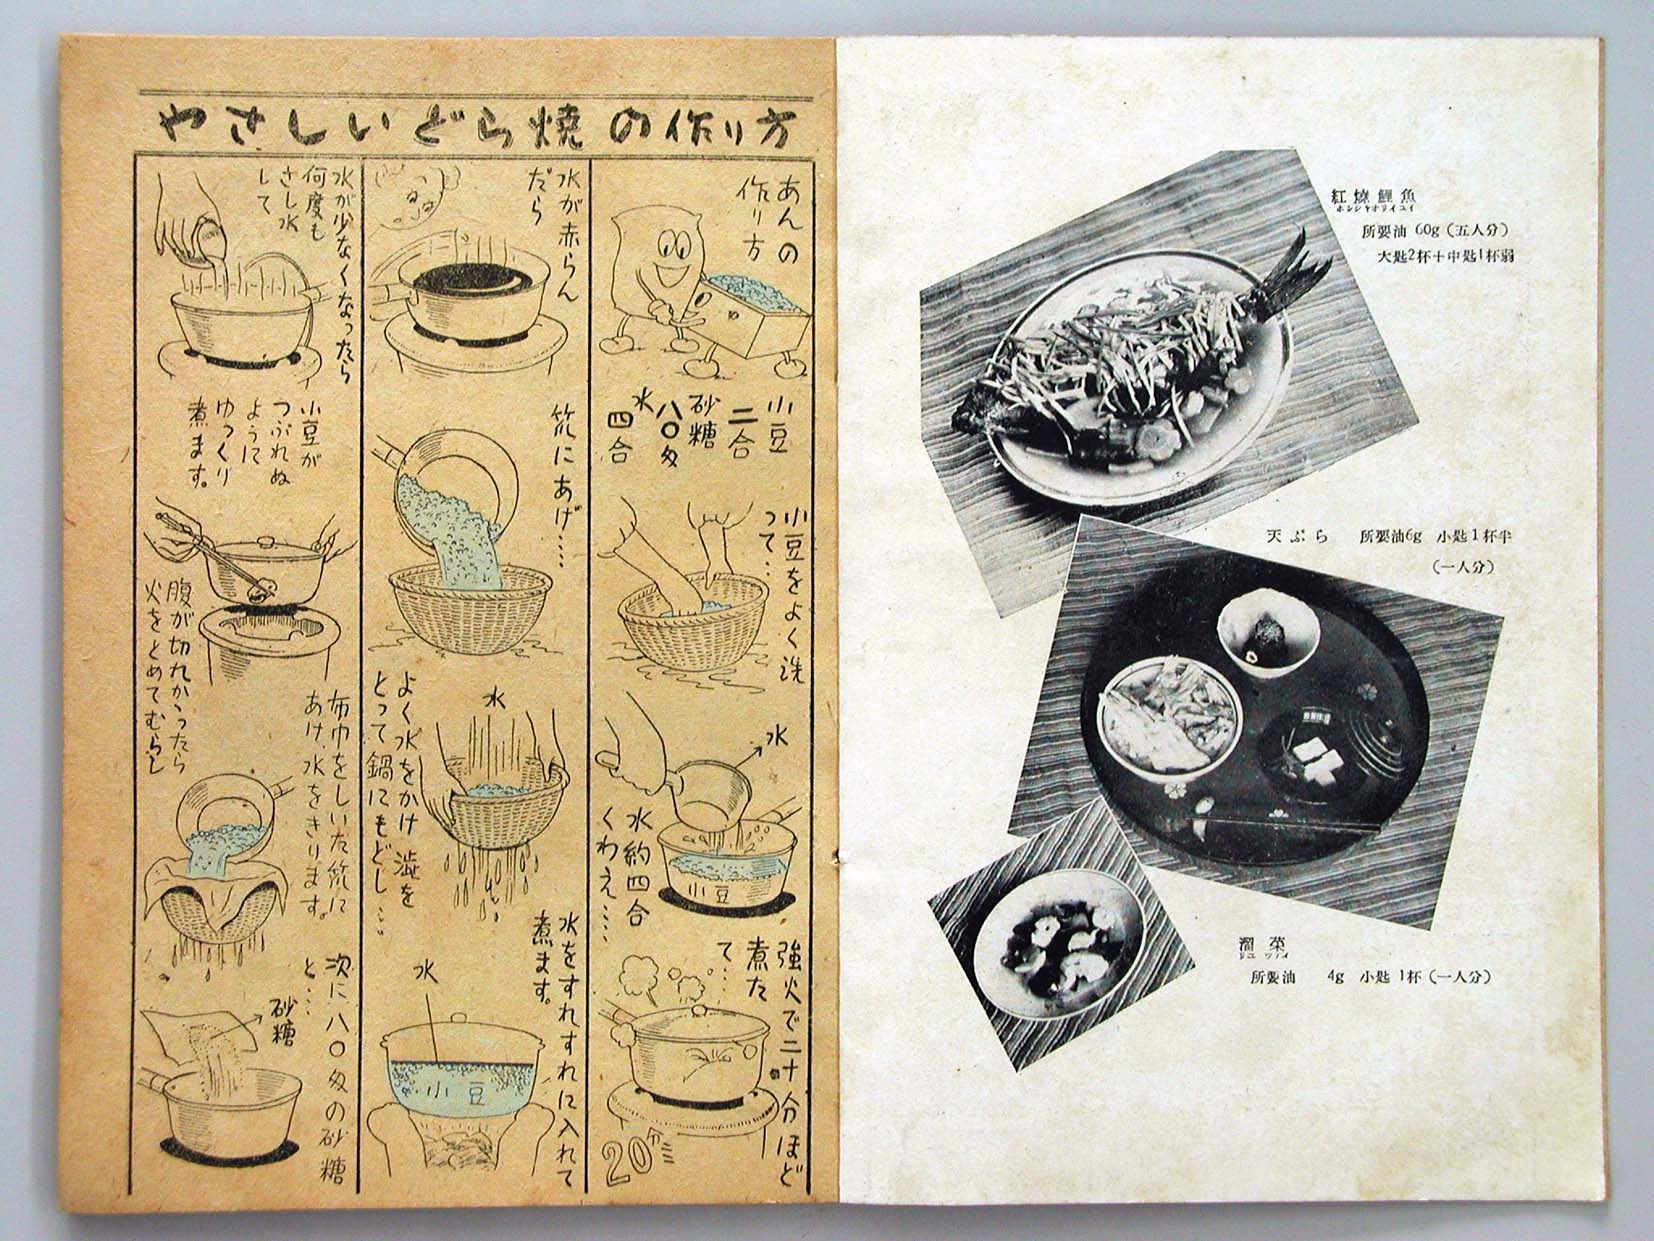 やさしいどら焼の作り方
あんの
作り方
小豆
二合
砂糖
八〇匁
水
四合
小豆をよく洗
って…
水
水約四合
くわえ……
小豆
強火で二十分ほど
煮た
て…
20分
水が赤らん
だら
笊にあげ……
水
よく水をかけ 澁を
とって鍋にもどし……
水をすれすれに入れて
煮ます。
水
小豆
水が少なくなったら
何度も
さし水
して
小豆が
つぶれぬ
ように
ゆっくり
煮ます。
腹が切れかゝったら
火をとめてむらし
布巾をしいた笊に
あけ、水をきります。
次に八〇匁の砂糖
と……
砂糖
紅燒鯉魚
ホンシャオリイユイ
所要油 60g(五人分)
大匙2杯十中匙1杯弱
天ぷら 所要油6g 小匙1杯半
(一人分)
溜菜
リユ ツァイ
所要油 4g 小匙 1杯(一人分)